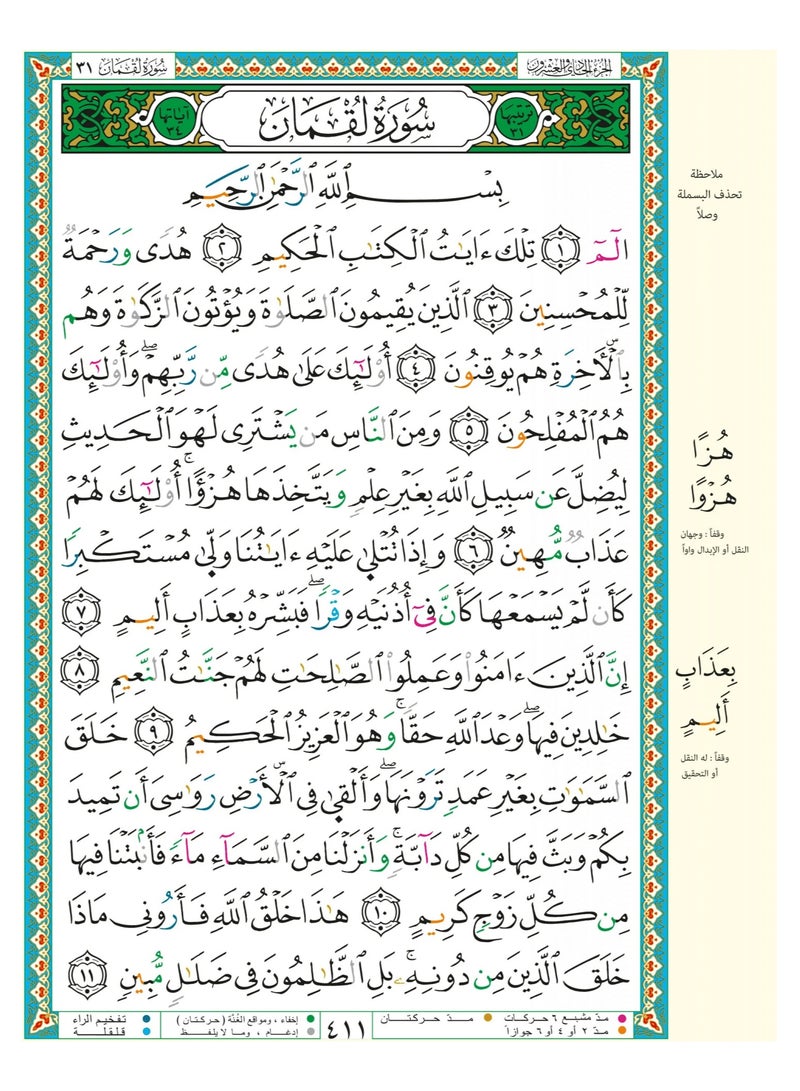 الجزء الحادي والعشرون
سُورَةُ لُقْمَان ٣١
ترتيبها ٣١
سُورَةُ لُقْمَان
آياتها ٣٤
بِسْمِ ٱللَّهِ ٱلرَّحْمَٰنِ ٱلرَّحِيمِ
الٓمٓ ١ تِلْكَ ءَايَٰتُ ٱلْكِتَٰبِ ٱلْحَكِيمِ ٢ هُدًى وَرَحْمَةٌ
لِّلْمُحْسِنِينَ ٣ ٱلَّذِينَ يُقِيمُونَ ٱلصَّلَوٰةَ وَيُؤْتُونَ ٱلزَّكَوٰةَ وَهُم
بِٱلْأَخِرَةِ هُمْ يُوقِنُونَ ٤ أُوْلَٰٓئِكَ عَلَىٰ هُدًى مِّن رَّبِّهِمْ ۖ وَأُوْلَٰٓئِكَ
هُمُ ٱلْمُفْلِحُونَ ٥ وَمِنَ ٱلنَّاسِ مَن يَشْتَرِى لَهْوَ ٱلْحَدِيثِ
لِيُضِلَّ عَن سَبِيلِ ٱللَّهِ بِغَيْرِ عِلْمٍ وَيَتَّخِذَهَا هُزْؤًا ۚ أُوْلَٰٓئِكَ لَهُمْ
عَذَابٌ مُّهِينٌ ٦ وَإِذَا تُتْلَىٰ عَلَيْهِ ءَايَٰتُنَا وَلَّىٰ مُسْتَكْبِرًا
كَأَن لَّمْ يَسْمَعْهَا كَأَنَّ فِىٓ أُذُنَيْهِ وَقْرًا ۖ فَبَشِّرْهُ بِعَذَابٍ أَلِيمٍ ٧
إِنَّ ٱلَّذِينَ ءَامَنُوا۟ وَعَمِلُوا۟ ٱلصَّٰلِحَٰتِ لَهُمْ جَنَّٰتُ ٱلنَّعِيمِ ٨
خَٰلِدِينَ فِيهَا ۖ وَعْدَ ٱللَّهِ حَقًّا ۚ وَهُوَ ٱلْعَزِيزُ ٱلْحَكِيمُ ٩ خَلَقَ
ٱلسَّمَٰوَٰتِ بِغَيْرِ عَمَدٍ تَرَوْنَهَا ۖ وَأَلْقَىٰ فِى ٱلْأَرْضِ رَوَٰسِىَ أَن تَمِيدَ
بِكُمْ وَبَثَّ فِيهَا مِن كُلِّ دَآبَّةٍ ۚ وَأَنزَلْنَا مِنَ ٱلسَّمَآءِ مَآءً فَأَنۢبَتْنَا فِيهَا
مِن كُلِّ زَوْجٍ كَرِيمٍ ١٠ هَٰذَا خَلْقُ ٱللَّهِ فَأَرُونِى مَاذَا
خَلَقَ ٱلَّذِينَ مِن دُونِهِۦ ۚ بَلِ ٱلظَّٰلِمُونَ فِى ضَلَٰلٍ مُّبِينٍ ١١
ملاحظة
تحذف البسملة
وصلاً
هُزًا
هُزْوًا
وقفاً : وجهان
النقل أو الإبدال واواً
بِعَذَابٍ
أَلِيمٍ
وقفاً : له النقل
أو التحقيق
مدّ مشبع ٦ حركات
مدّ حركتان
مدّ ٢ أو ٤ أو ٦ جوازاً
٤١١
إخفاء ، ومواقع الغُنَّة (حركتان)
إدغام ، وما لا يلفظ
تفخيم الراء
قلقلة